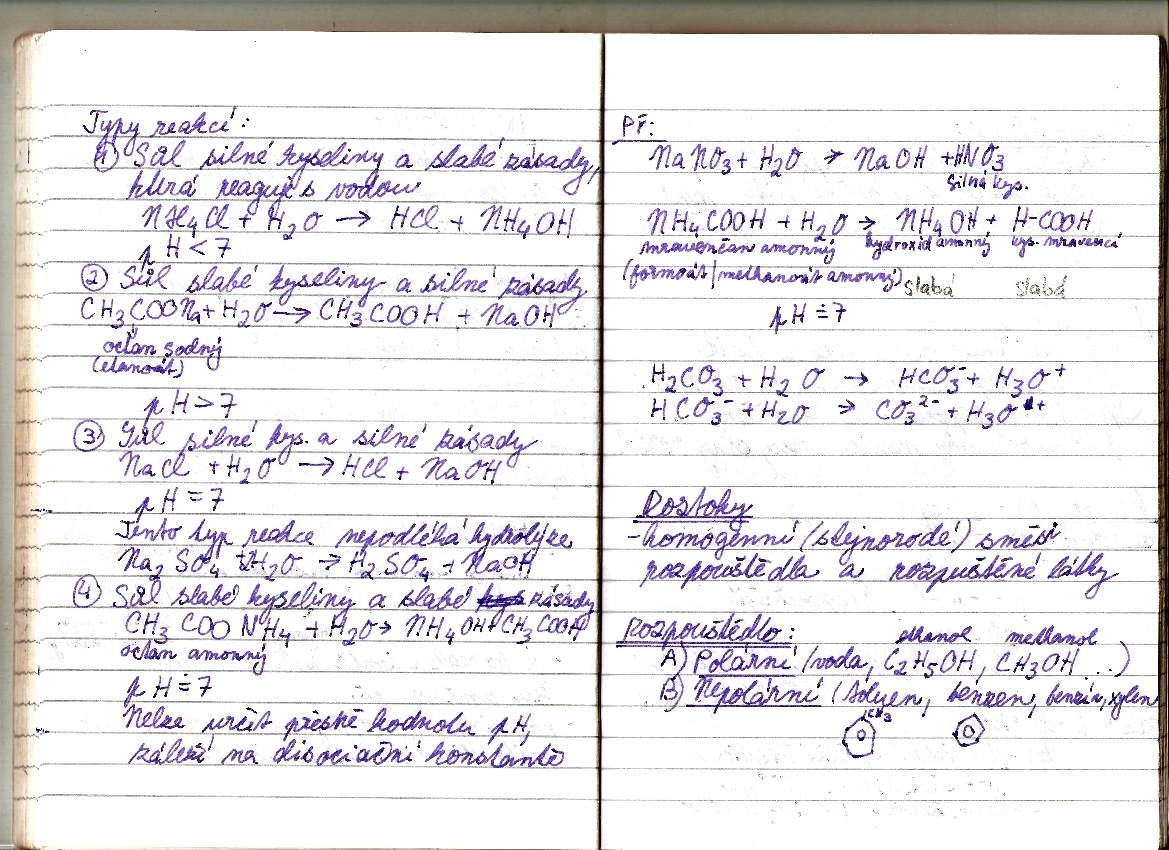 Typy reakcí:
① Sůl silné kyseliny a slabé zásady,
která reaguje s vodou
NH₄Cl + H₂O → HCl + NH₄OH
pH < 7
② Sůl slabé kyseliny a silné zásady
CH₃COONa + H₂O → CH₃COOH + NaOH
octan sodný
(etanoát)
pH > 7
③ Sůl silné kys. a silné zásady
NaCl + H₂O → HCl + NaOH
pH = 7
Tento typ reakce nepodléhá hydrolýze
Na₂SO₄ + H₂O → H₂SO₄ + NaOH
④ Sůl slabé kyseliny a slabé zásady
CH₃COONH₄ + H₂O → NH₄OH + CH₃COOH
octan amonný
pH ≐ 7
Nelze určit přesně hodnotu pH,
záleží na disociační konstantě
PŘ:
NaNO₃ + H₂O → NaOH + HNO₃
silná kys.
NH₄COOH + H₂O → NH₄OH + H-COOH
mravenčan amonný hydroxid amonný kys. mravenčí
(formoát/methanoát amonný) slabá slabá
pH ≐ 7
H₂CO₃ + H₂O → HCO₃⁻ + H₃O⁺
HCO₃⁻ + H₂O → CO₃²⁻ + H₃O⁺
Roztoky
- homogenní (stejnorodé) směsi
rozpouštědla a rozpuštěné látky
Rozpouštědlo: ethanol methanol
A) Polární (voda, C₂H₅OH, CH₃OH ...)
B) Nepolární (tolyen, benzen, benzín, xylen
CH₃